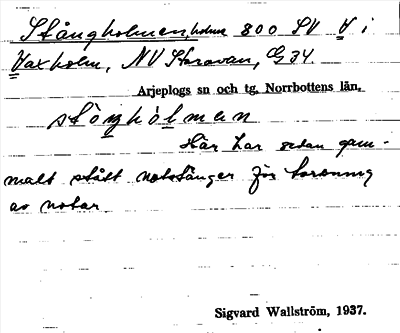 Stångholmen, holme 800 SV V i
Vaxholm, NV Storavan, G 34.
Arjeplogs sn och tg. Norrbottens län.
stònghòlmen
Här har sedan gam-
malt stått notstänger för torkning
av notar
Sigvard Wallström, 1937.